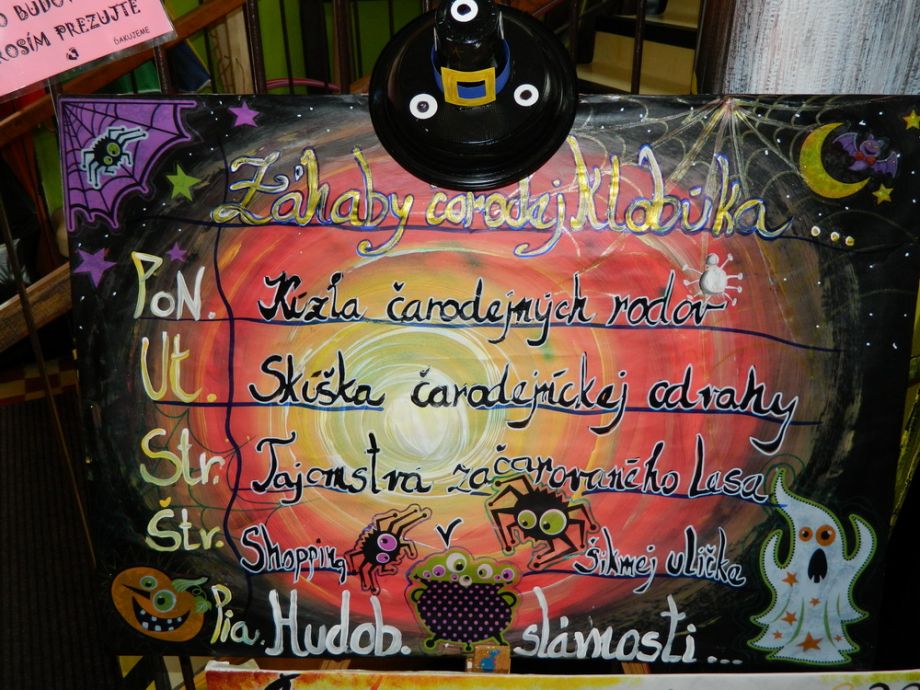 O BUDOV
ROSÍM PREZUJTE
ĎAKUJEME
Záhaby čarodej Klobúka ...
PON. Kúzla čarodejných rodov
Ut. Skúška čarodejníckej odvahy
Str. Tajomstvá začarovaného Lasa
Štr. Shopping v Šikmej uličke
Pia. Hudob. slávnosti...